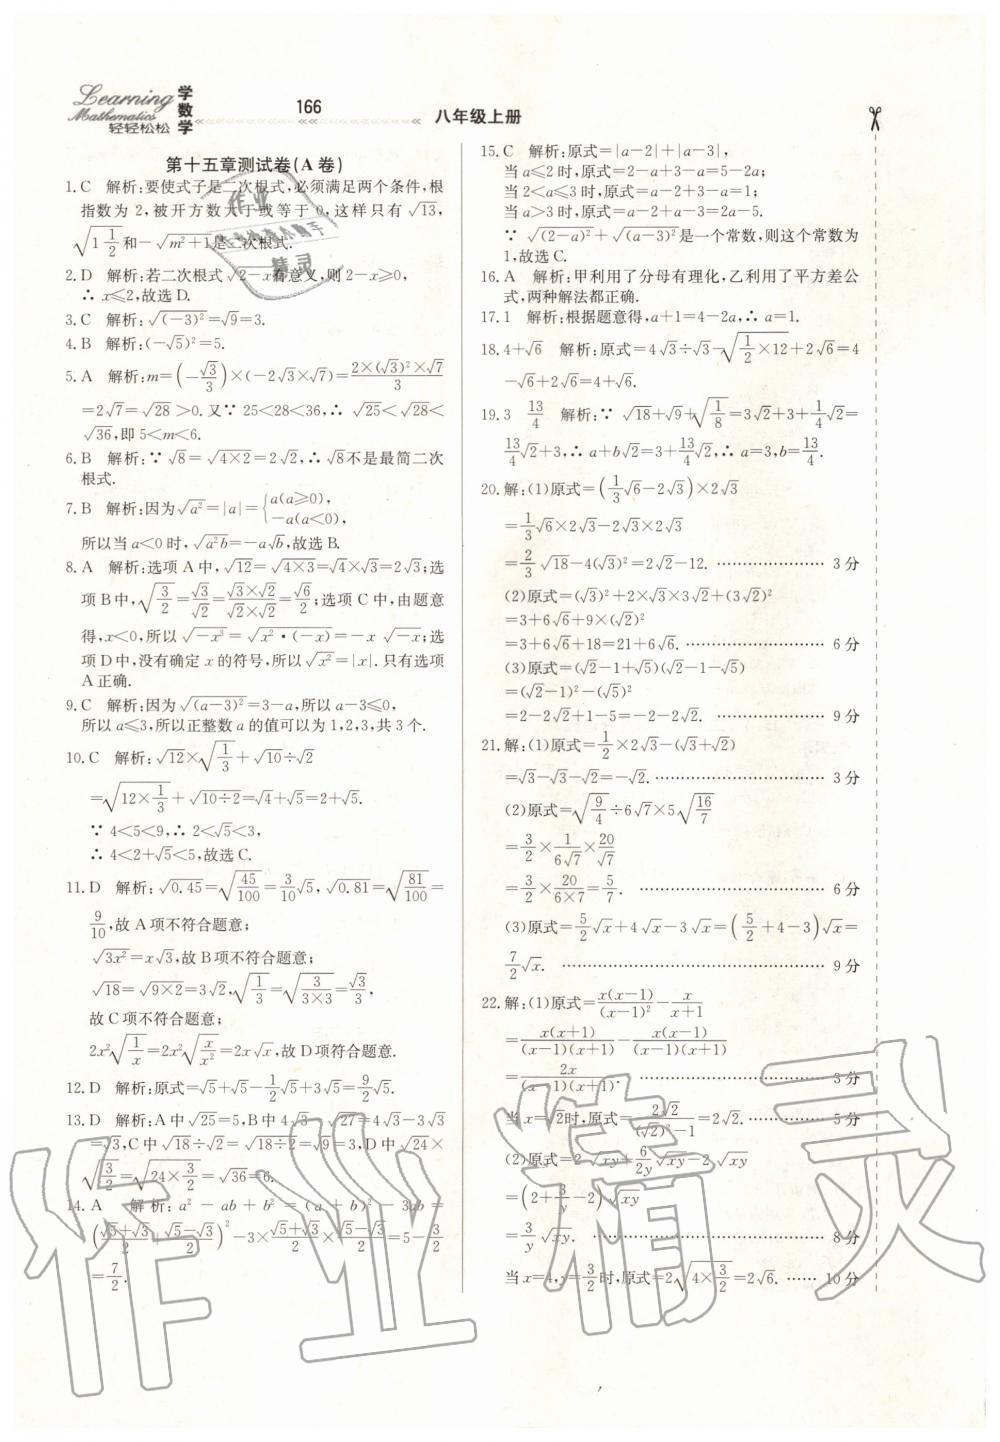 Learning
Mathematics
轻轻松松
学数学
166
八年级上册
第十五章测试卷(A卷)
1.C 解析:要使式子是二次根式,必须满足两个条件,根
指数为 2,被开方数大于或等于 0,这样只有 √13,
√(1 1/2)和-√(m²+1)是二次根式.
2.D 解析:若二次根式√(2-x)有意义,则 2-x≥0,
∴ x≤2,故选 D.
3.C 解析:√((-3)²)=√9=3.
4.B 解析:(-√5)²=5.
5.A 解析:m=(-√3/3)×(-2√3×√7)=(2×(√3)²×√7)/3
=2√7=√28 >0.又∵ 25<28<36,∴ √25<√28<
√36,即 5<m<6.
6.B 解析:∵ √8=√(4×2)=2√2,∴ √8不是最简二次
根式.
7.B 解析:因为√(a²)=|a|={a(a≥0),
-a(a<0),
所以当 a<0 时,√(a²b)=-a√b,故选 B.
8.A 解析:选项 A 中,√12=√(4×3)=√4×√3=2√3;选
项 B 中,√(3/2)=√3/√2=(√3×√2)/(√2×√2)=√6/2;选项 C 中,由题意
得,x<0,所以 √(-x³)=√(x²·(-x))=-x√(-x);选
项 D 中,没有确定 x 的符号,所以 √(x²)=|x|.只有选项
A 正确.
9.C 解析:因为 √((a-3)²)=3-a,所以 a-3≤0,
所以 a≤3,所以正整数 a 的值可以为 1,2,3,共 3 个.
10.C 解析:√12×√(1/3)+√10÷√2
=√(12×1/3)+√(10÷2)=√4+√5=2+√5.
∵ 4<5<9,∴ 2<√5<3,
∴ 4<2+√5<5,故选 C.
11.D 解析:√0.45=√(45/100)=3/10√5,√0.81=√(81/100)=
9/10,故 A 项不符合题意;
√(3x²)=x√3,故 B 项不符合题意;
√18=√(9×2)=3√2,√(1/3)=√(3/(3×3))=√3/3,
故 C 项不符合题意;
2x²√(1/x)=2x²√(x/x²)=2x√x,故 D 项符合题意.
12.D 解析:原式=√5+√5-1/2√5+3√5=9/2√5.
13.D 解析:A 中 √25=5,B 中 4√3-√27=4√3-3√3
=√3,C 中 √18÷√2=√(18÷2)=√9=3,D 中 √24×
√(3/2)=√(24×3/2)=√36=6.
14.A 解析:a²-ab+b²=(a+b)²-3ab=
((√5+√3)/2+(√5-√3)/2)²-3×(√5+√3)/2×(√5-√3)/2=5-3/2
=7/2.
15.C 解析:原式=|a-2|+|a-3|,
当 a≤2 时,原式=2-a+3-a=5-2a;
当 2<a≤3 时,原式=a-2+3-a=1;
当 a>3 时,原式=a-2+a-3=2a-5.
∵ √((2-a)²)+√((a-3)²)是一个常数,则这个常数为
1,故选 C.
16.A 解析:甲利用了分母有理化,乙利用了平方差公
式,两种解法都正确.
17.1 解析:根据题意得,a+1=4-2a,∴ a=1.
18.4+√6 解析:原式=4√3÷√3-√(1/2×12)+2√6=4
-√6+2√6=4+√6.
19.3 13/4 解析:∵ √18+√9+√(1/8)=3√2+3+1/4√2=
13/4√2+3,∴ a+b√2=3+13/4√2,∴ a=3,b=13/4.
20.解:(1)原式=(1/3√6-2√3)×2√3
=1/3√6×2√3-2√3×2√3
=2/3√18-4(√3)²=2√2-12. ………………… 3 分
(2)原式=(√3)²+2×√3×3√2+(3√2)²
=3+6√6+9×(√2)²
=3+6√6+18=21+6√6. ………………… 6 分
(3)原式=(√2-1+√5)(√2-1-√5)
=(√2-1)²-(√5)²
=2-2√2+1-5=-2-2√2. ………………… 9 分
21.解:(1)原式=1/2×2√3-(√3+√2)
=√3-√3-√2=-√2. ………………… 3 分
(2)原式=√(9/4)÷6√7×5√(16/7)
=3/2×1/(6√7)×20/√7
=3/2×20/(6×7)=5/7. ………………… 6 分
(3)原式=5/2√x+4√x-3√x=(5/2+4-3)√x=
7/2√x. ………………… 9 分
22.解:(1)原式=x(x-1)/(x-1)²-x/(x+1)
=x(x+1)/((x-1)(x+1))-x(x-1)/((x-1)(x+1))
=2x/((x-1)(x+1)). ………………… 3 分
当 x=√2时,原式=2√2/((√2)²-1)=2√2. ………………… 5 分
(2)原式=2√(xy)+6/(2y)√(xy)-2√(xy)
=(2+3/y-2)√(xy)
=3/y√(xy). ………………… 8 分
当 x=4,y=3/2时,原式=2√(4×3/2)=2√6. …… 10 分
作业精灵